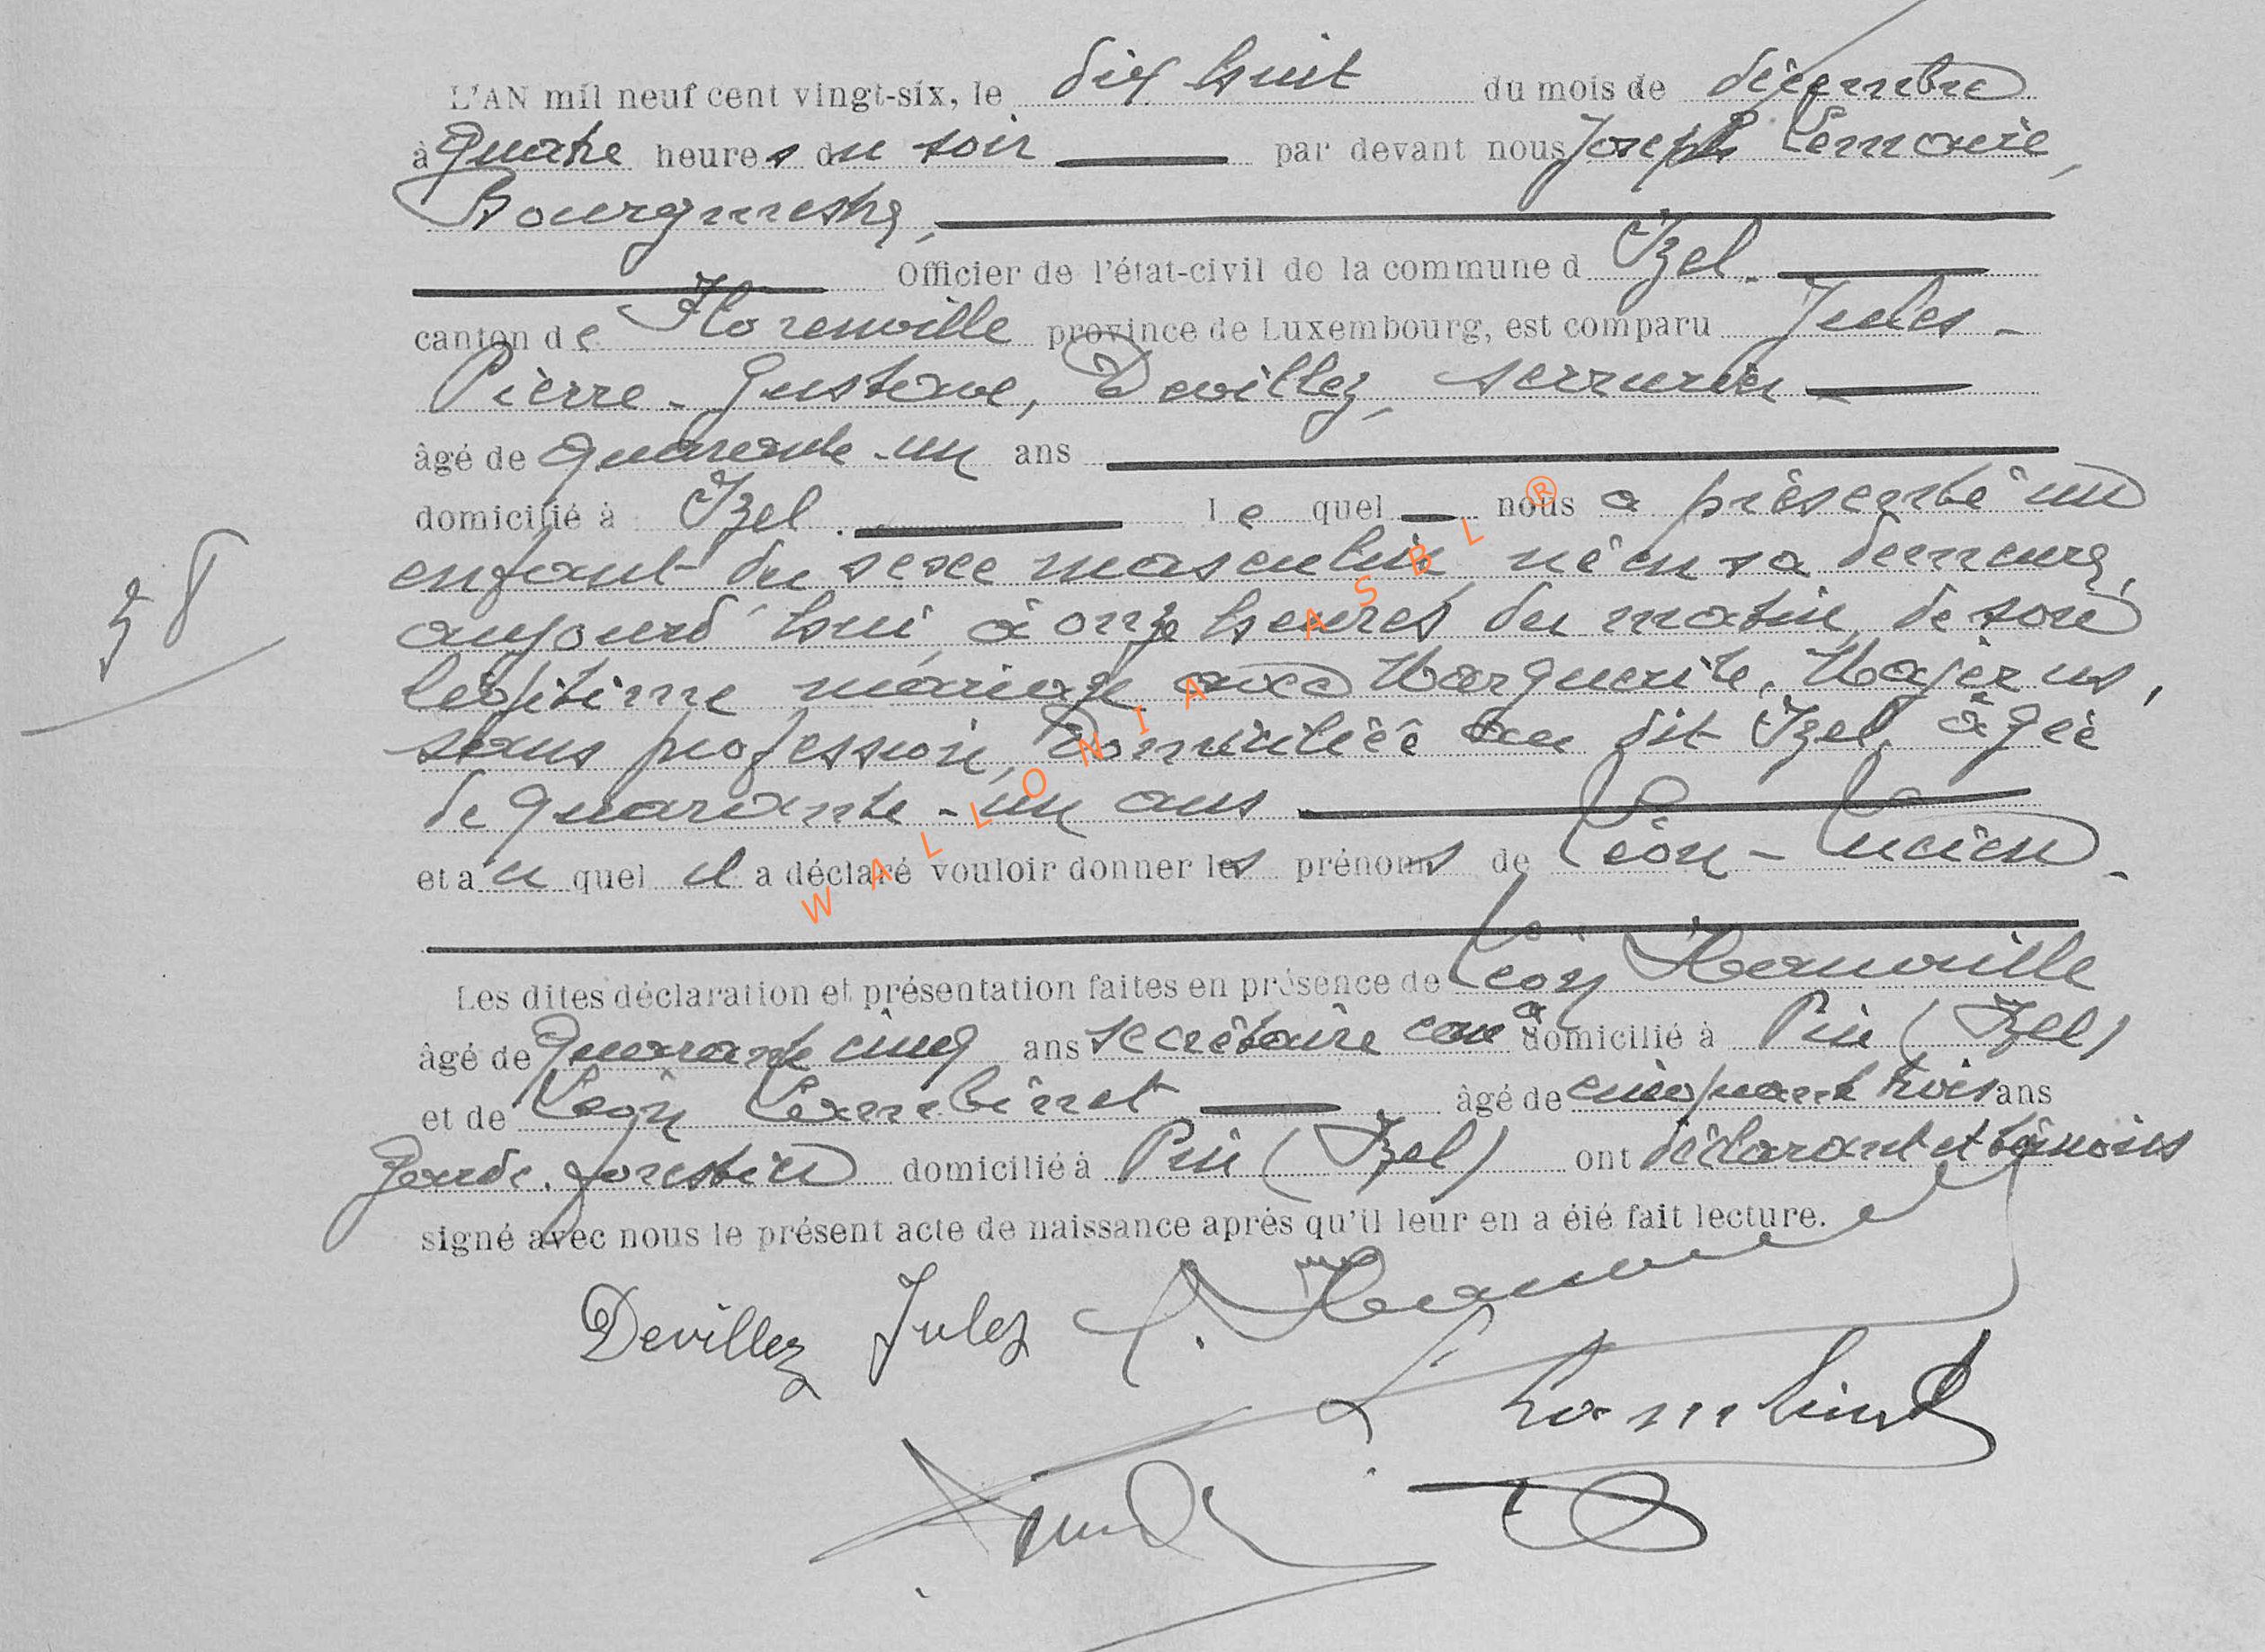 L'AN mil neuf cent vingt-six, le dix huit du mois de décembre
à quatre heures du soir par devant nous Joseph Lemaire,
Bourgmestre,
Officier de l'état-civil de la commune d Izel.
canton de Florenville province de Luxembourg, est comparu Jules-
Pierre-Gustave, Devillez, serrurier
âgé de quarante-un ans
domicilié à Izel. Le quel nous a présenté un
enfant du sexe masculin, né en sa demeure,
58
aujourd'hui, à onze heures du matin, de son
légitime mariage avec Marguerite, Majèrus,
sans profession, domiciliée au dit Izel, âgée
de quarante-un ans
et au quel il a déclaré vouloir donner les prénoms de Léon-Lucien.
Les dites déclaration et présentation faites en présence de Léon Hanonville
âgé de quarante cinq ans secrétaire coal domicilié à Pin (Izel)
et de Léon Lambinet âgé de cinquante trois ans
Garde forestier domicilié à Pin (Izel) ont déclarant et témoins
signé avec nous le présent acte de naissance après qu'il leur en a été fait lecture.
Devillez Jules
L. Lambinet
WALLONIA ASBL ®